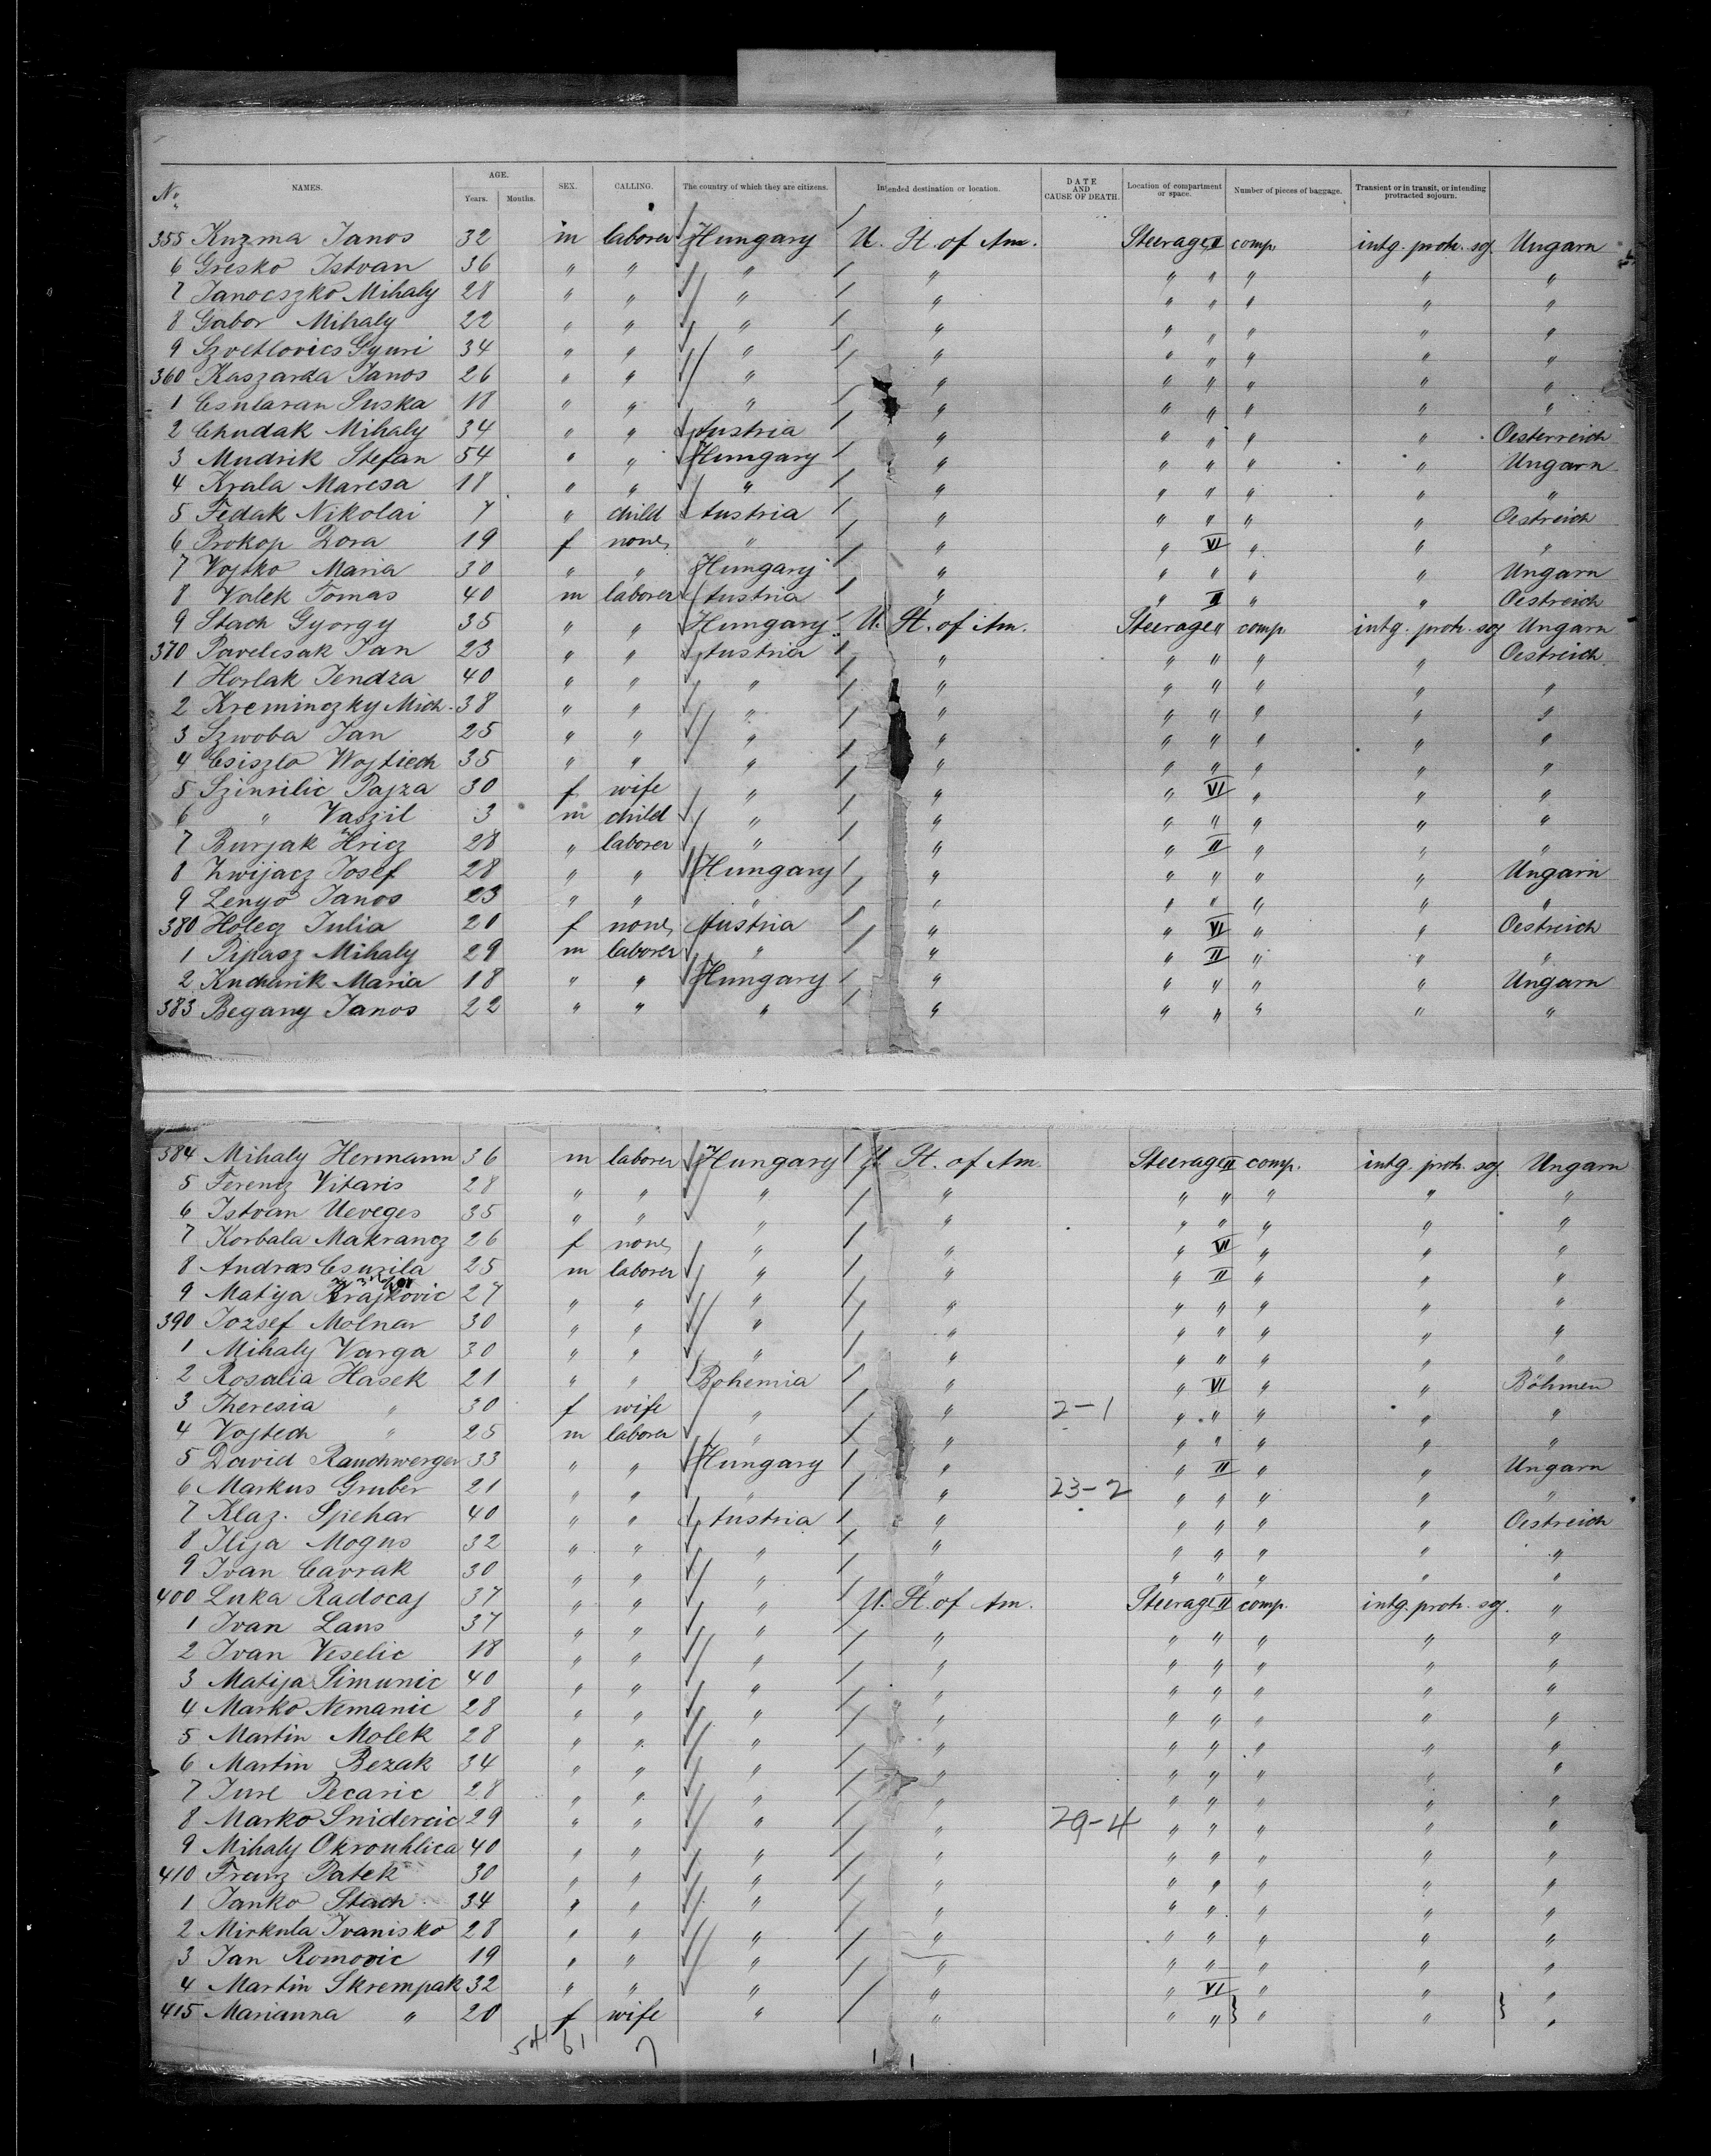 No. NAMES. AGE. Years. Months. SEX. CALLING. The country of which they are citizens. Intended destination or location. DATE AND CAUSE OF DEATH. Location of compartment or space. Number of pieces of baggage. Transient or in transit, or intending protracted sojourn.
355 Kuzma Janos 32 m laborer Hungary U. St. of Am. Steerage II comp. intg. protr. soj. Ungarn
6 Gresko Istvan 36 " " " " " " " " "
7 Janocszko Mihaly 28 " " " " " " " " "
8 Gabor Mihaly 22 " " " " " " " " "
9 Szvetlovics Gyuri 34 " " " " " " " " "
360 Kaszarda Janos 26 " " " " " " " " "
1 Csularan Suska 18 " " " " " " " " "
2 Chudak Mihaly 34 " " Austria " " " " " Oesterreich
3 Mudrik Stefan 54 " " Hungary " " " " " Ungarn
4 Krala Marcsa 18 " " " " " " " " "
5 Fedak Nikolai 7 " child Austria " " " " " Oestreich
6 Prokop Dora 19 f none " " " VI " " "
7 Vojtko Maria 30 " " Hungary " " " " " Ungarn
8 Valek Tomas 40 m laborer Austria " " II " " Oestreich
9 Stach Gyorgy 35 " " Hungary U. St. of Am. Steerage " comp. intg. protr. soj. Ungarn
370 Pavelcsak Jan 23 " " Austria " " " " " Oestreich
1 Horlak Jendza 40 " " " " " " " " "
2 Kreminczky Mich. 38 " " " " " " " " "
3 Szwoba Jan 25 " " " " " " " " "
4 Csiszlo Wojtiech 35 " " " " " " " " "
5 Szinrilic Pajza 30 f wife " " " VI " " "
6 " Vaszil 3 m child " " " " " " "
7 Burjak Hricz 28 " laborer " " " II " " "
8 Zwijacz Josef 28 " " Hungary " " " " " Ungarn
9 Lenyo Janos 23 " " " " " " " " "
380 Holecz Julia 20 f none Austria " " VI " " Oestreich
1 Pipasz Mihaly 29 m laborer " " " II " " "
2 Kucharik Maria 18 " " Hungary " " " " " Ungarn
383 Begany Janos 22 " " " " " " " " "
384 Mihaly Hermann 36 m laborer Hungary U. St. of Am. Steerage II comp. intg. protr. soj. Ungarn
5 Ferencz Vitaris 28 " " " " " " " " "
6 Istvan Ueveges 35 " " " " " " " " "
7 Korbala Makrancz 26 f none " " " VI " " "
8 Andras Csuzila 25 m laborer " " " II " " "
9 Matija Krajkovic 27 " " " " " " " " "
390 Jozsef Molnar 30 " " " " " " " " "
1 Mihaly Varga 30 " " " " " " " " "
2 Rosalia Hasek 21 " " Bohemia " " VI " " Böhmen
3 Theresia " 30 f wife " " 2-1 " " " " "
4 Vojtech " 25 m laborer " " " " " " "
5 David Rauchwerger 33 " " Hungary " " II " " Ungarn
6 Markus Gruber 21 " " " " 23-2 " " " " "
7 Klaz. Spehar 40 " " Austria " " " " " Oestreich
8 Ilija Mogus 32 " " " " " " " " "
9 Ivan Cavrak 30 " " " " " " " " "
400 Luka Radocaj 37 " " " U. St. of Am. Steerage II comp. intg. protr. soj. "
1 Ivan Laus 37 " " " " " " " " "
2 Ivan Veselic 18 " " " " " " " " "
3 Matija Simunic 40 " " " " " " " " "
4 Marko Nemanic 28 " " " " " " " " "
5 Martin Molek 28 " " " " " " " " "
6 Martin Bezak 34 " " " " " " " " "
7 Jure Pecaric 28 " " " " " " " " "
8 Marko Snidercic 29 " " " " 29-4 " " " " "
9 Mihaly Okrouhlica 40 " " " " " " " " "
410 Franz Patek 30 " " " " " " " " "
1 Janko Stach 34 " " " " " " " " "
2 Mirkula Ivanisko 28 " " " " " " " " "
3 Jan Romovic 19 " " " " " " " " "
4 Martin Skrempak 32 " " " " " VI " " "
415 Marianna " 20 f wife " " " " " " "
54 61 7